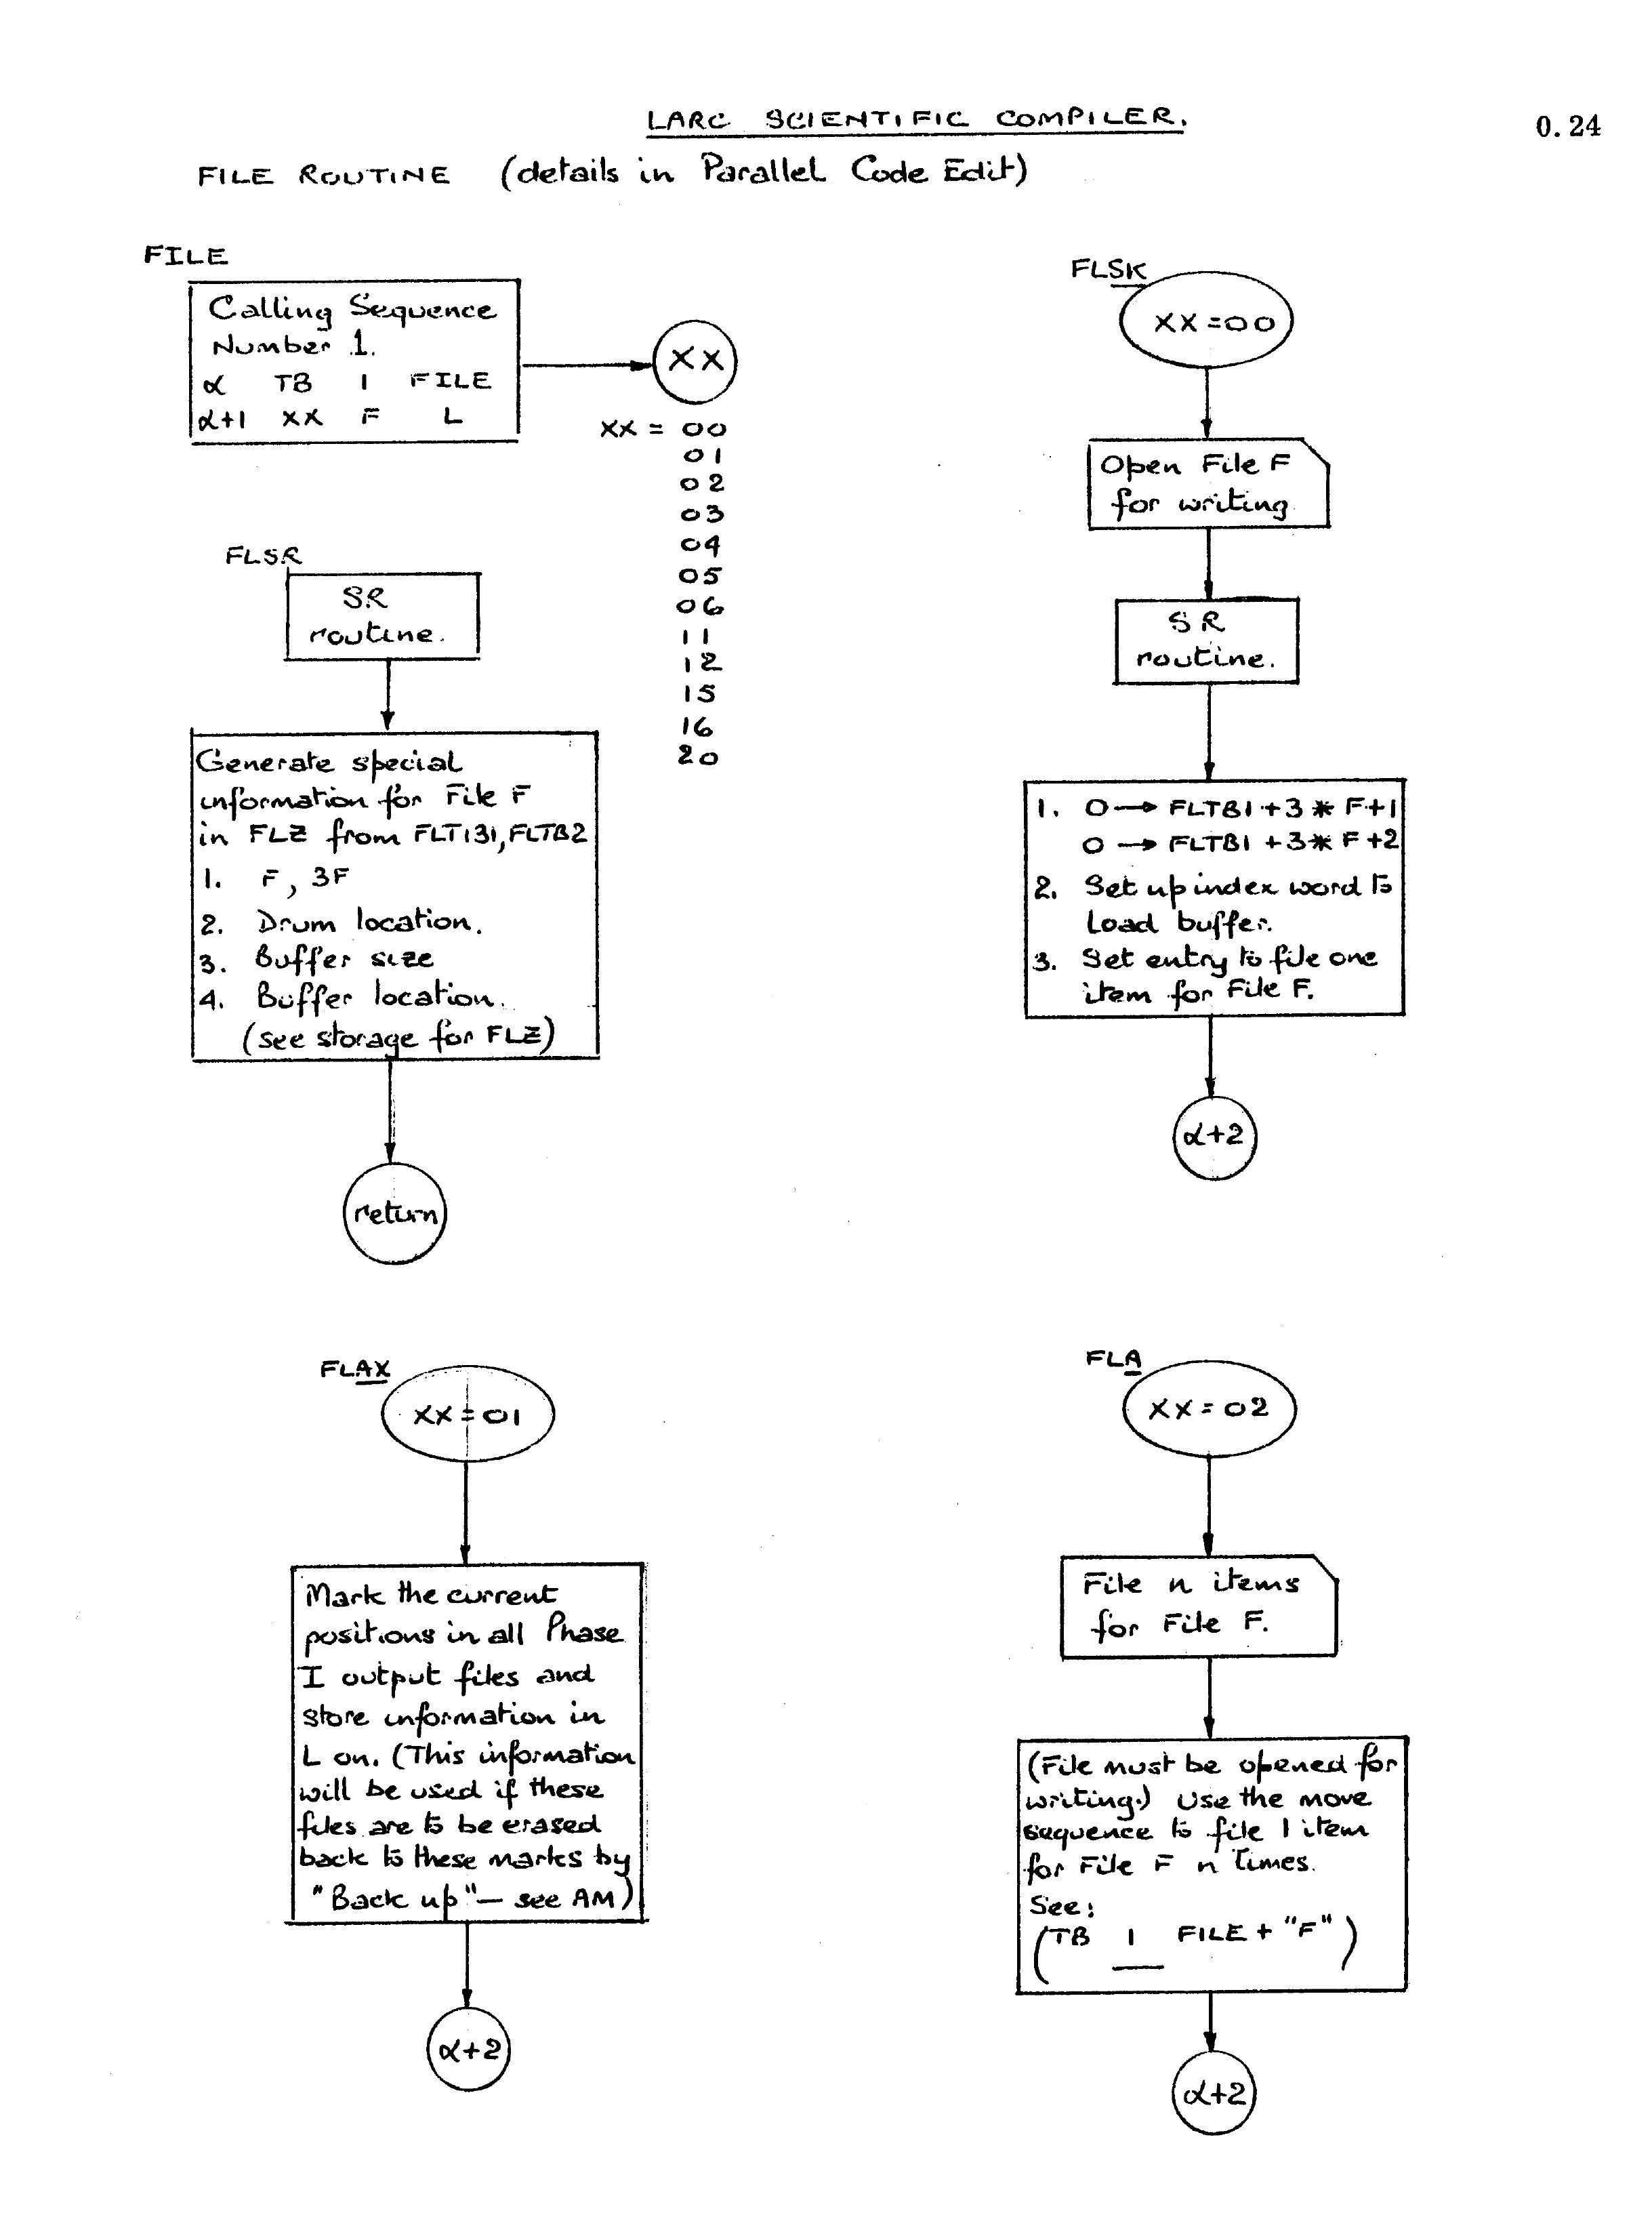 LARC SCIENTIFIC COMPILER.
0.24
FILE ROUTINE (details in Parallel Code Edit)
FILE
Calling Sequence
Number 1.
α TB 1 FILE
α+1 XX F L
XX
XX = 00
01
02
03
04
05
06
11
12
15
16
20
FLSR
SR
routine.
Generate special
information for File F
in FLZ from FLTB1, FLTB2
1. F, 3F
2. Drum location.
3. Buffer size
4. Buffer location.
(see storage for FLZ)
return
FLSK
XX=00
Open File F
for writing
SR
routine.
1. 0→ FLTB1+3*F+1
0 → FLTB1+3*F+2
2. Set up index word to
Load buffer.
3. Set entry to file one
item for File F.
α+2
FLAX
XX=01
Mark the current
positions in all Phase
I output files and
store information in
L on. (This information
will be used if these
files are to be erased
back to these marks by
"Back up" — see AM)
α+2
FLA
XX=02
File n items
for File F.
(File must be opened for
writing.) Use the move
sequence to file 1 item
for File F n times.
See:
(TB 1 FILE + "F")
α+2